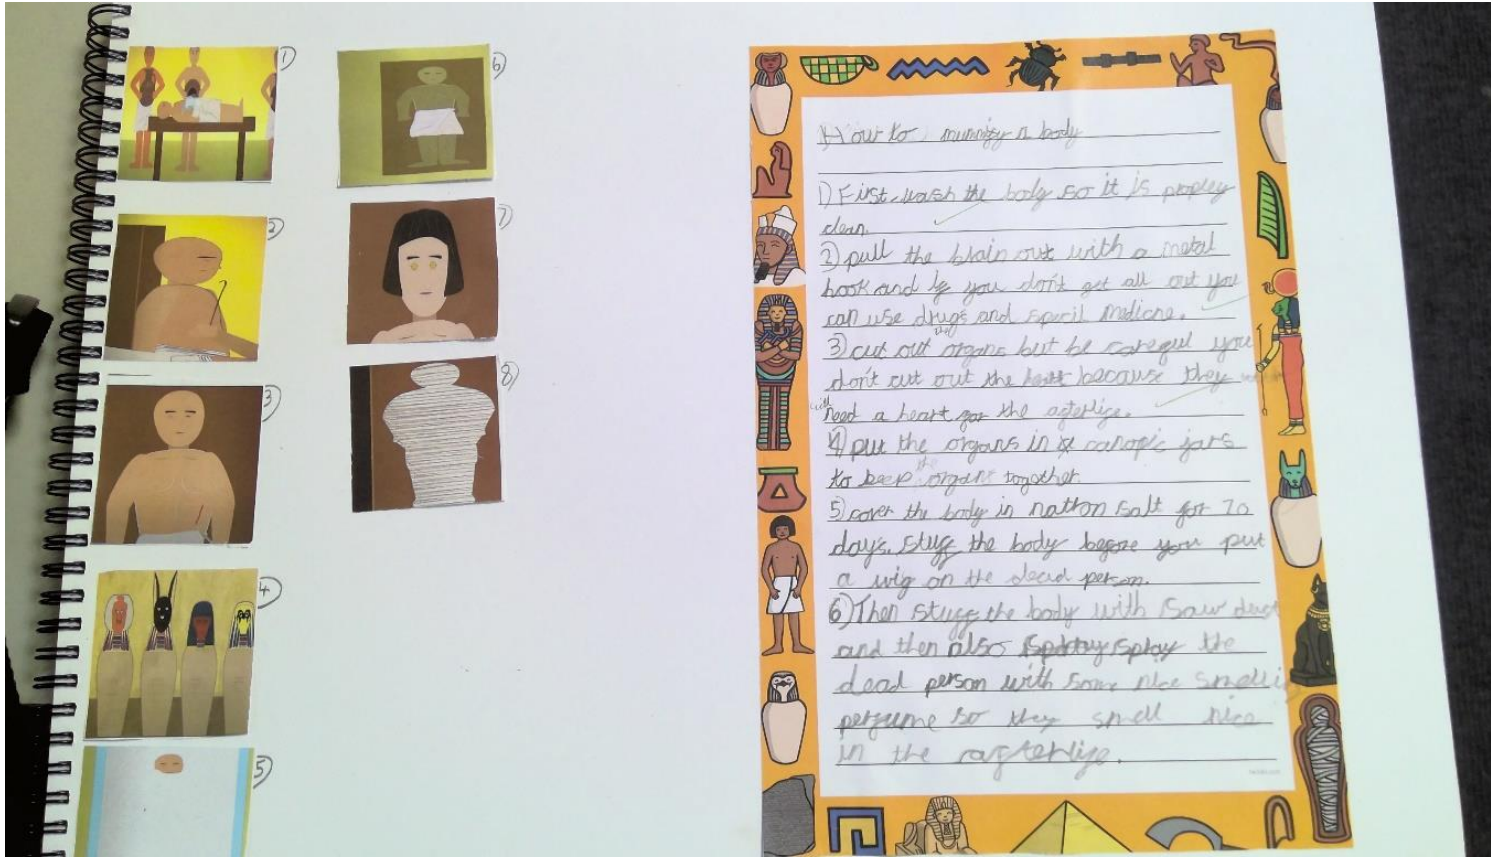 1)
2)
3)
4)
5)
6)
7)
8)
How to mummfy a body
1) First wash the body so it is propley
clean.
2) pull the brain out with a metal
hook and if you don't get all out you
can use drugs and specil medicne.
3) cut out the organs but be careful you
don't cut out the because they
will need a heart for the afterlife.
4) put the organs in canopic jars
to keep the organs together.
5) cover the body in natron salt for 70
days. stuff the body before you put
a wig on the dead person.
6) Then stuff the body with saw dust
and then also spray the
dead person with some nice smelling
perfume so they smell nice
in the afterlife.